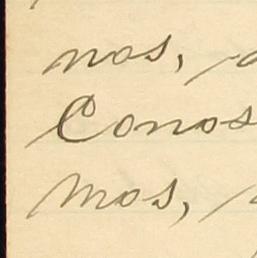 nos,
Conos
mos,